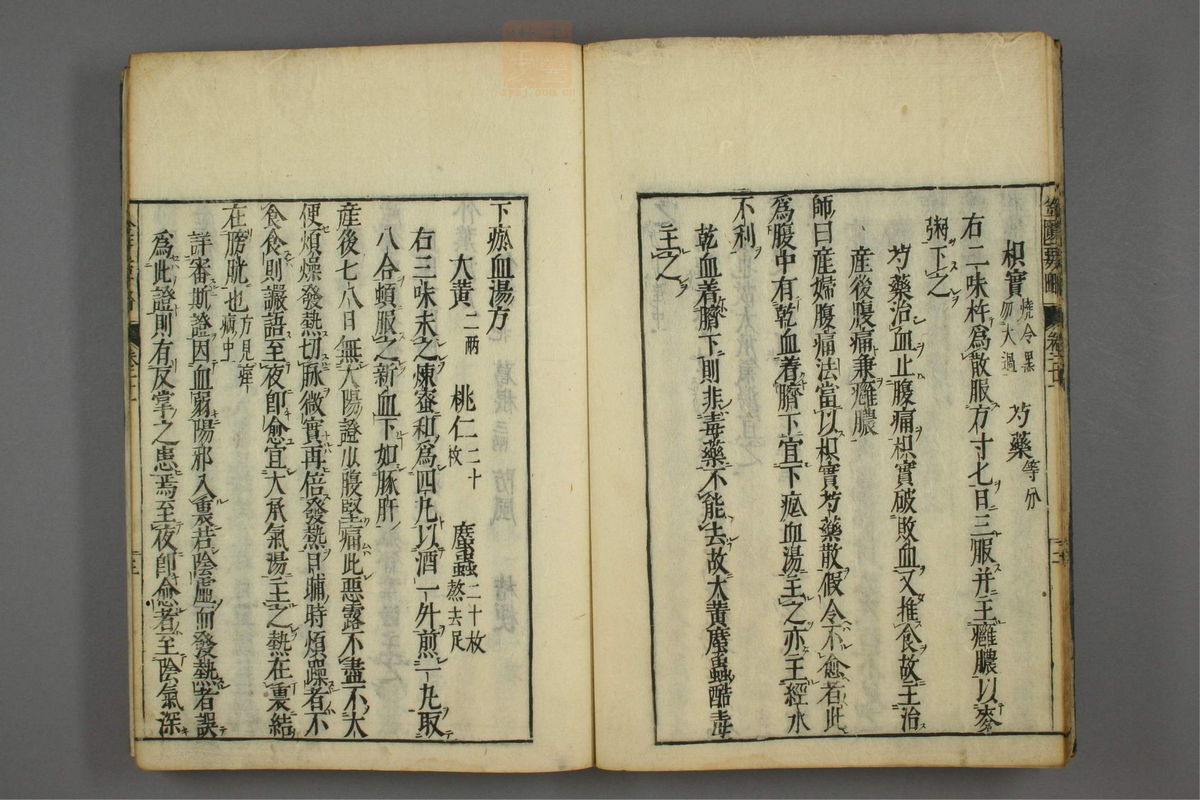 枳實燒令黑勿太過 芍藥等分
右二味杵爲散服方寸匕日三服并主癰膿以麥
粥下之
芍藥治血止腹痛枳實破敗血又推食故主治
產後腹痛兼癰膿
師曰產婦腹痛法當以枳實芍藥散假令不愈者此
爲腹中有乾血着臍下宜下瘀血湯主之亦主經水
不利
乾血着臍下則非毒藥不能去故大黃䗪蟲酷毒
主之
下瘀血湯方
大黃二兩 桃仁二十枚 䗪蟲二十枚熬去足
右三味末之煉蜜和爲四丸以酒一升煎一丸取
八合頓服之新血下如豚肝
產後七八日無太陽證少腹堅痛此惡露不盡不大
便煩燥發熱切脉微實再倍發熱日晡時煩躁者不
食食則讝語至夜卽愈宜大承氣湯主之熱在裏結
在膀胱也方見痙病中
詳審斯證因血弱陽邪入裏若陰虛而發熱者誤
爲此證則有反掌之患焉至夜卽愈者至陰氣深